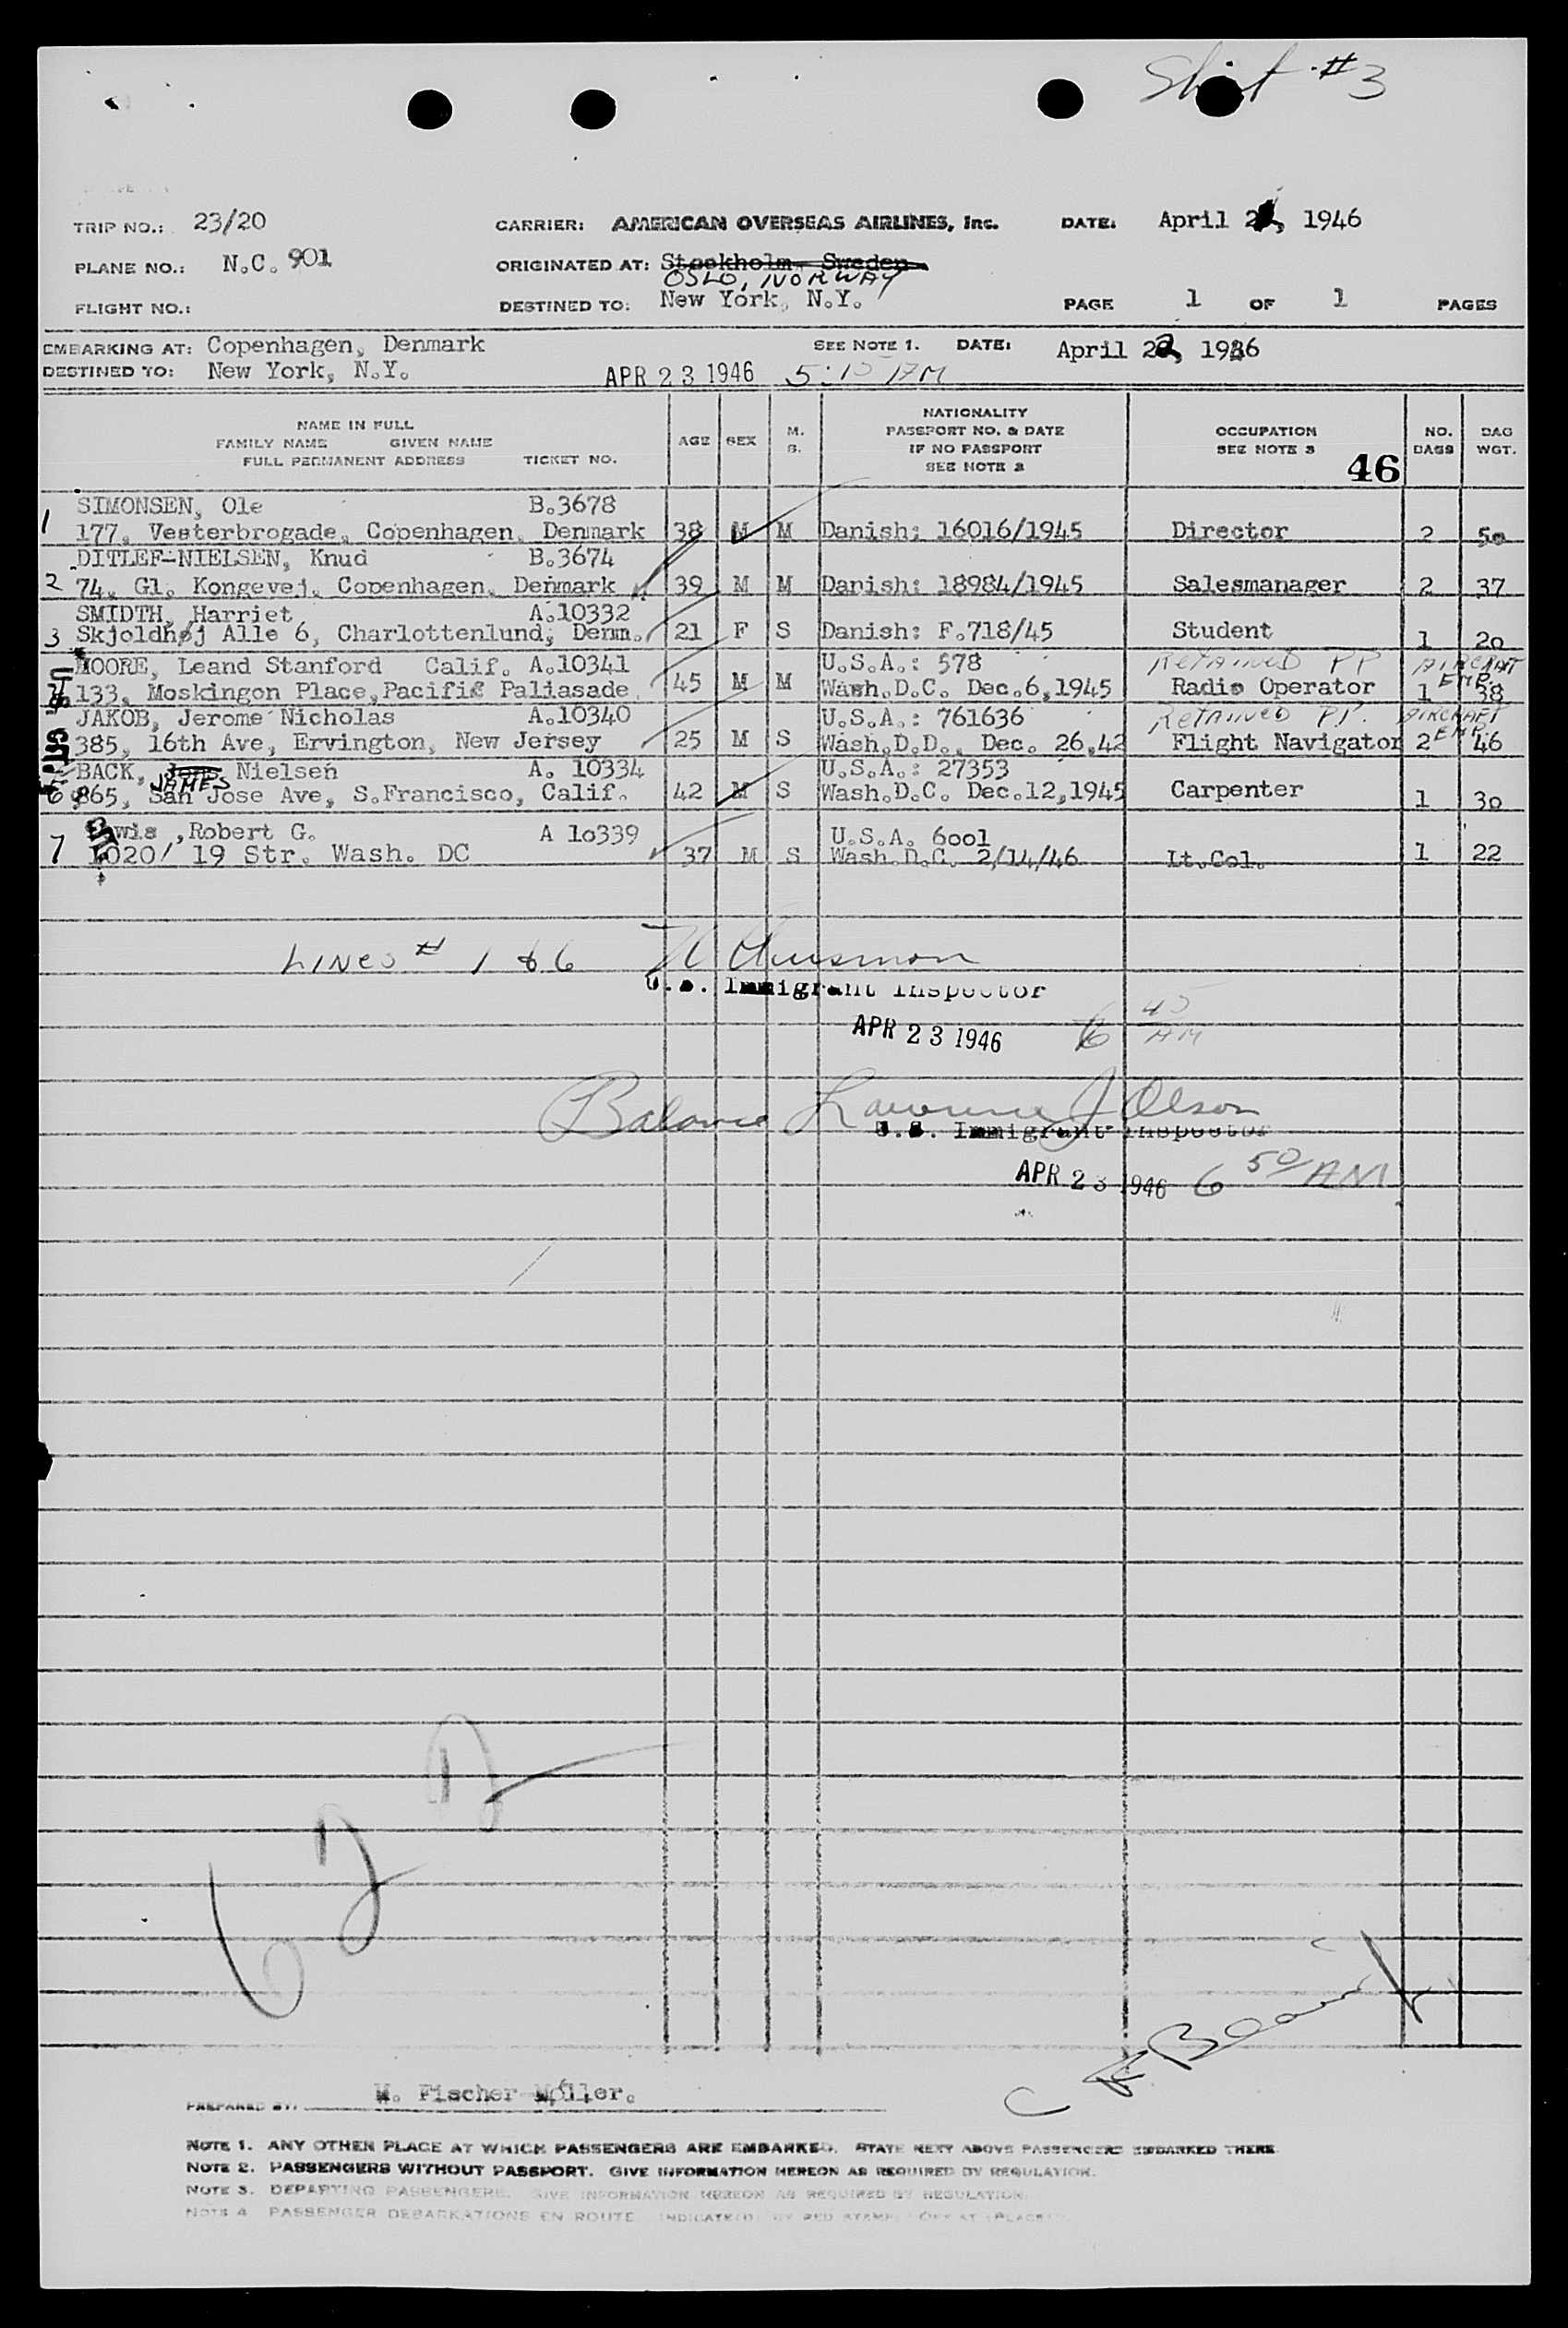 #3
TRIP NO.: 23/20 CARRIER: AMERICAN OVERSEAS AIRLINES, Inc. DATE: April 2, 1946
PLANE NO.: N.C. 901 ORIGINATED AT: Stockholm, Sweden
OSLO, NORWAY
FLIGHT NO.: DESTINED TO: New York, N.Y. PAGE 1 OF 1 PAGES
EMBARKING AT: Copenhagen, Denmark SEE NOTE 1. DATE: April 22, 1946
DESTINED TO: New York, N.Y. APR 23 1946 5:15 AM
NAME IN FULL
FAMILY NAME GIVEN NAME
FULL PERMANENT ADDRESS TICKET NO.
AGE SEX M. S.
NATIONALITY
PASSPORT NO. & DATE
IF NO PASSPORT
SEE NOTE 2
OCCUPATION
SEE NOTE 3
46
NO. BAGS
BAG WGT.
SIMONSEN, Ole B.3678
1 177, Vesterbrogade, Copenhagen, Denmark 38 M M Danish: 16016/1945 Director 2 50
DITLEF-NIELSEN, Knud B.3674
2 74, Gl. Kongevej, Copenhagen, Denmark 39 M M Danish: 18984/1945 Salesmanager 2 37
SMIDTH, Harriet A.10332
3 Skjoldhøj Alle 6, Charlottenlund, Denm. 21 F S Danish: F.718/45 Student 1 20
MOORE, Leand Stanford Calif. A.10341 U.S.A.: 578 RETAINED PP AIRCRAFT EMP.
133, Moskingon Place, Pacific Paliasade 45 M M Wash.D.C. Dec.6,1945 Radio Operator 1 38
JAKOB, Jerome Nicholas A.10340 U.S.A.: 761636 RETAINED P.P. AIRCRAFT EMP.
385, 16th Ave, Ervington, New Jersey 25 M S Wash.D.D., Dec. 26,42 Flight Navigator 2 46
BACK, JAMES Nielsen A. 10334 U.S.A.: 27353
6 865, San Jose Ave, S.Francisco, Calif. 42 M S Wash.D.C. Dec.12,1945 Carpenter 1 30
wis ,Robert G. A 10339 U.S.A. 6001
7 1020/ 19 Str. Wash. DC 37 M S Wash.D.C. 2/14/46 Lt.Col. 1 22
LINES # 1 & 6
U.S. Immigrant Inspector
APR 23 1946 6 45 AM
Balance Lawrence J Olson
U.S. Immigrant Inspector
APR 23 1946 6 50 AM
PREPARED BY: M. Fischer-Möller.
NOTE 1. ANY OTHER PLACE AT WHICH PASSENGERS ARE EMBARKED, STATE NEXT ABOVE PASSENGERS EMBARKED THERE
NOTE 2. PASSENGERS WITHOUT PASSPORT. GIVE INFORMATION HEREON AS REQUIRED BY REGULATION.
NOTE 3. DEPARTING PASSENGERS. GIVE INFORMATION HEREON AS REQUIRED BY REGULATION
NOTE 4 PASSENGER DEBARKATIONS EN ROUTE INDICATE BY RED STAMP